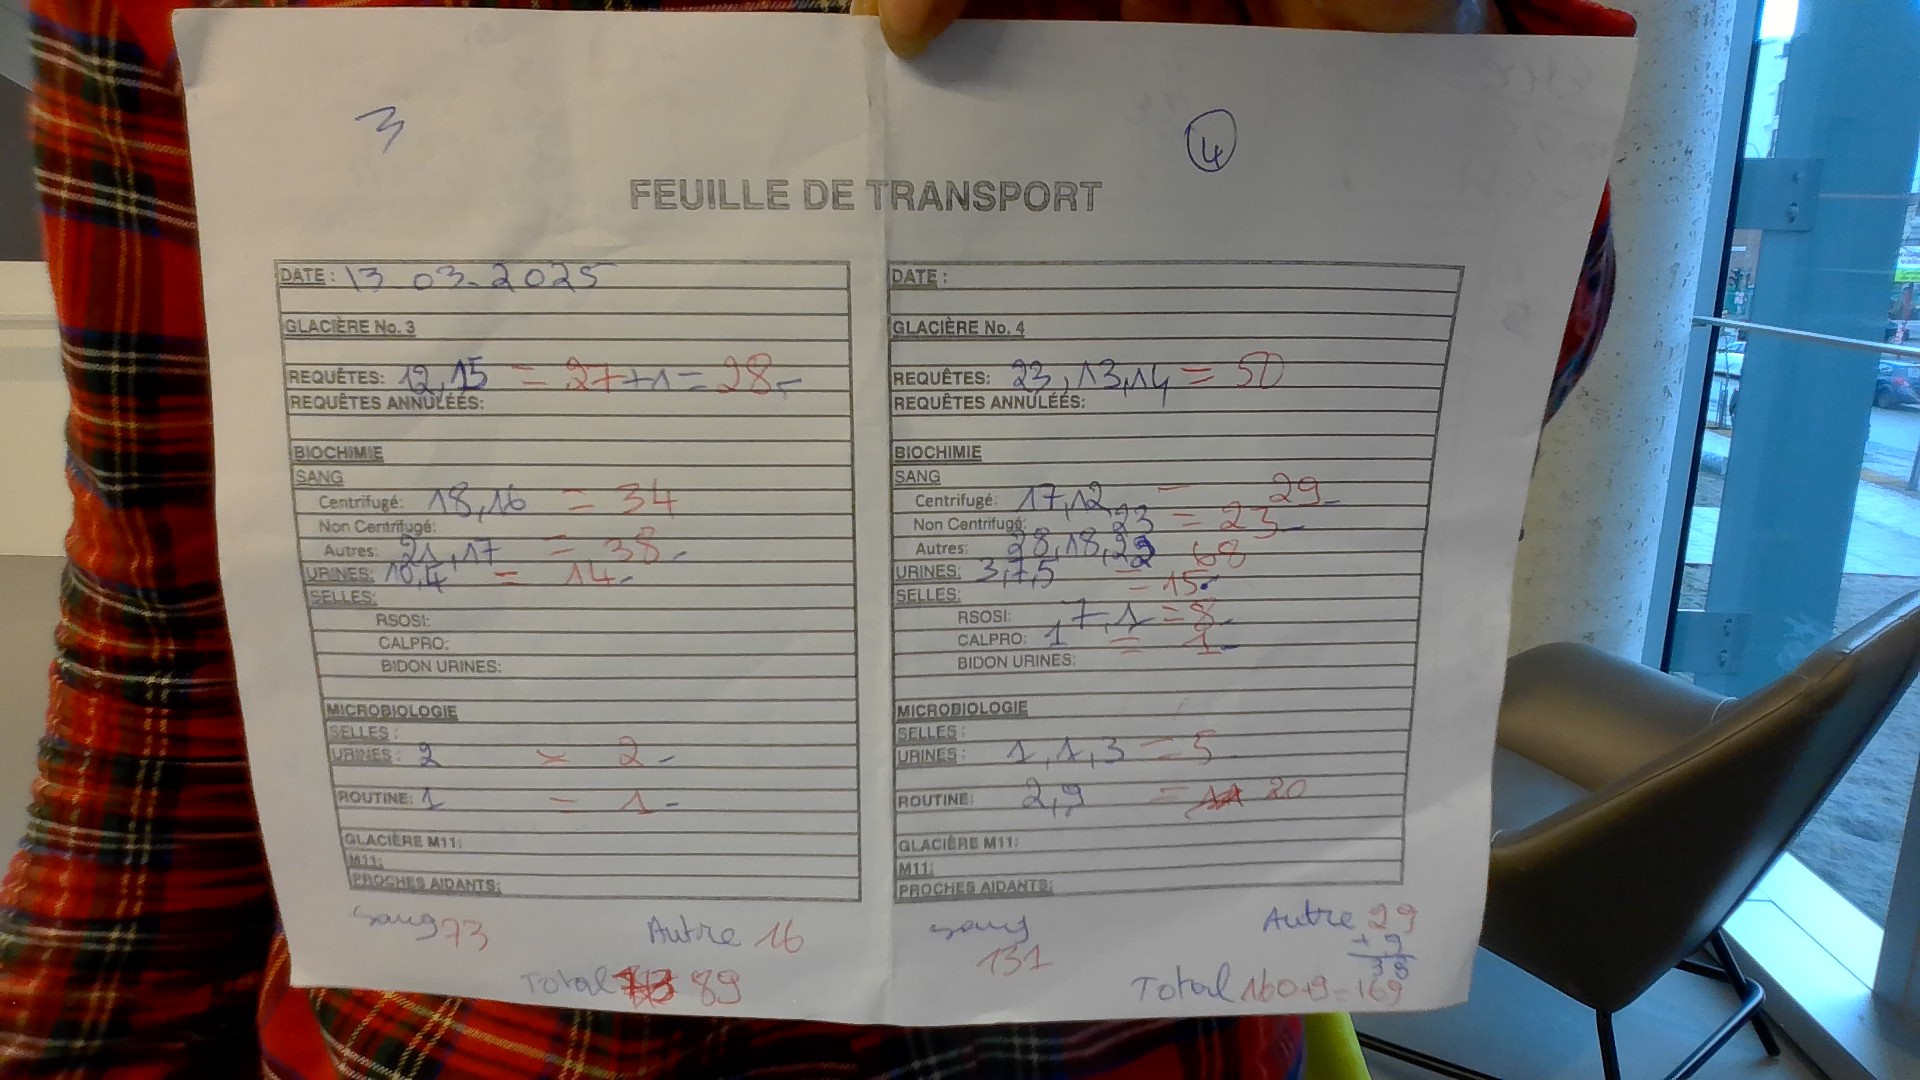 3
4
FEUILLE DE TRANSPORT
DATE : 13 03-2025
GLACIÈRE No. 3
REQUÊTES: 12,15 = 27+1=28-
REQUÊTES ANNULÉÉS:
BIOCHIMIE
SANG
Centrifugé: 18,16 = 34
Non Centrifugé:
Autres: 21,17 = 38-
URINES: 10,4 = 14-
SELLES:
RSOSI:
CALPRO:
BIDON URINES:
MICROBIOLOGIE
SELLES :
URINES : 2 = 2-
ROUTINE: 1 = 1-
GLACIÈRE M11:
M11:
PROCHES AIDANTS:
Sang 73 Autre 16
Total 89
DATE :
GLACIÈRE No. 4
REQUÊTES: 23,13,14 = 50
REQUÊTES ANNULÉÉS:
BIOCHIMIE
SANG
Centrifugé: 17,12 = 29-
Non Centrifugé: 23 = 23-
Autres: 28,18,22 = 68
URINES: 3,7,5 = 15-
SELLES:
RSOSI: 7,1 = 8-
CALPRO: 1 = 1-
BIDON URINES:
MICROBIOLOGIE
SELLES :
URINES : 1,1,3 = 5
ROUTINE: 2,9 = 11 20
GLACIÈRE M11:
M11:
PROCHES AIDANTS:
sang Autre 29
131 + 9
38
Total 160+9=169